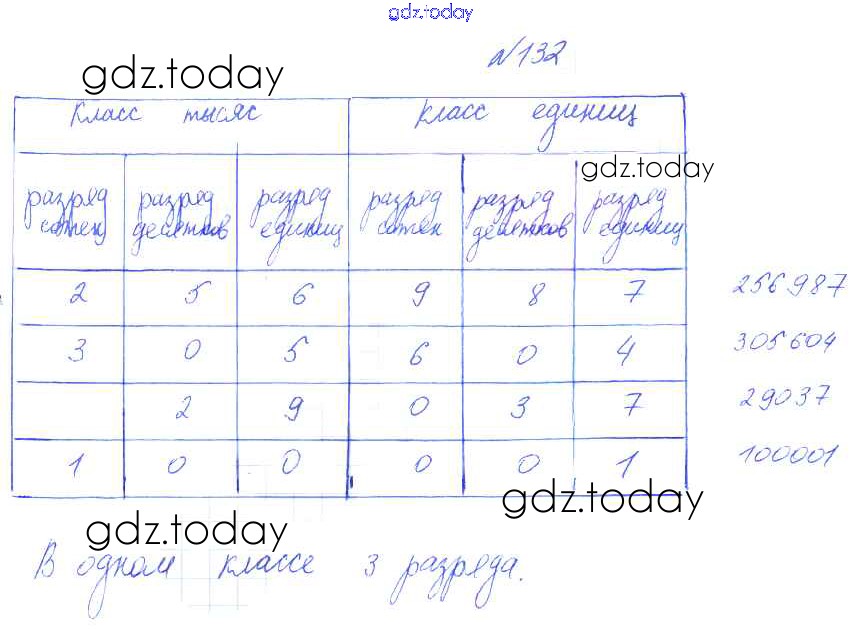 gdz.today
№132
gdz.today
Класс тысяс класс единиц
gdz.today
разряд сотен разряд десятков разряд единиц разряд сотен разряд десятков разряд единиц
2 5 6 9 8 7 256987
3 0 5 6 0 4 305604
2 9 0 3 7 29037
1 0 0 0 0 1 100001
gdz.today
gdz.today
В одном классе 3 разряда.